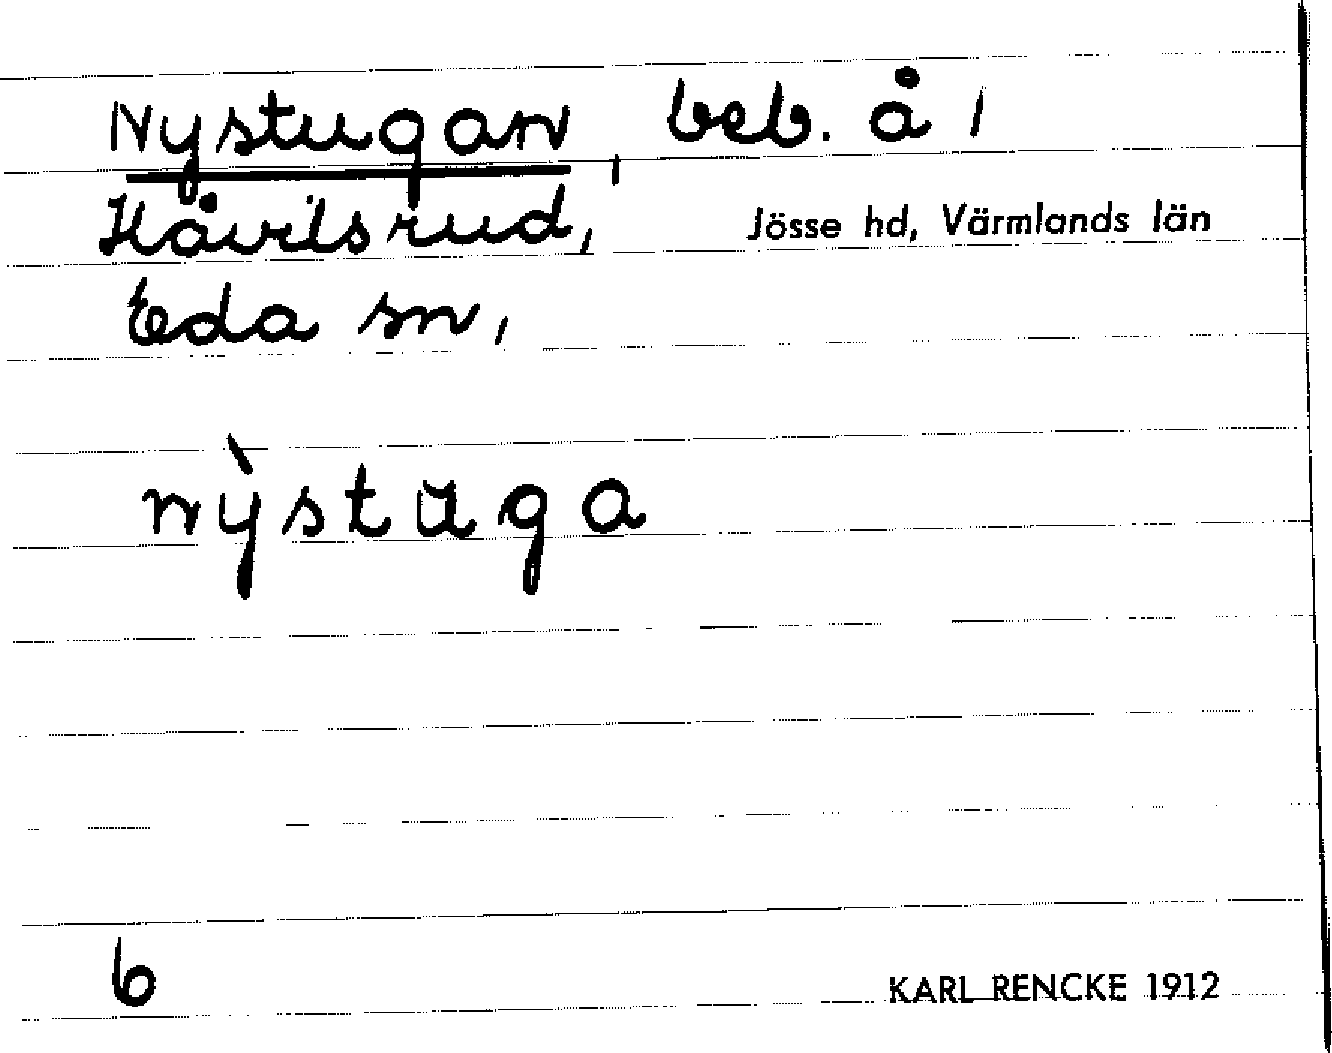 Nystugan, beb. å 1
Håvilsrud,
Jösse hd, Värmlands län
Eda sn,
nỳstuga
6
KARL RENCKE 1912